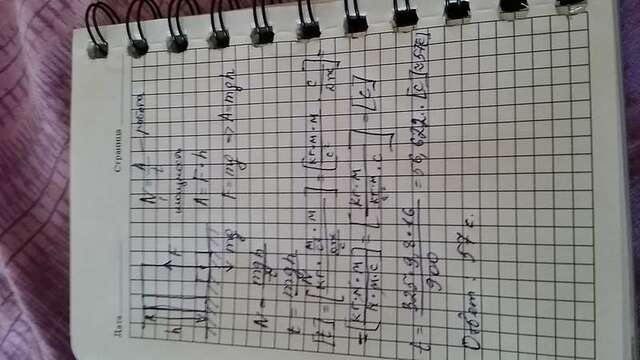 Дата Страница
N = A/t — работа
мощность
h F A = F · h
mg F = mg => A = mgh
N = mgh/t
t = mgh/N
[t] = [кг · м/с² · м / Дж/с] = [кг·м·м/с² · с/Дж] =
= [кг·м·м/Н·м·с] = [кг·м / кг·м/с² · с] = [с]
t = 325·9,8·16/900 = 56,622.. [с] ≈ 57с
Ответ: 57 с.